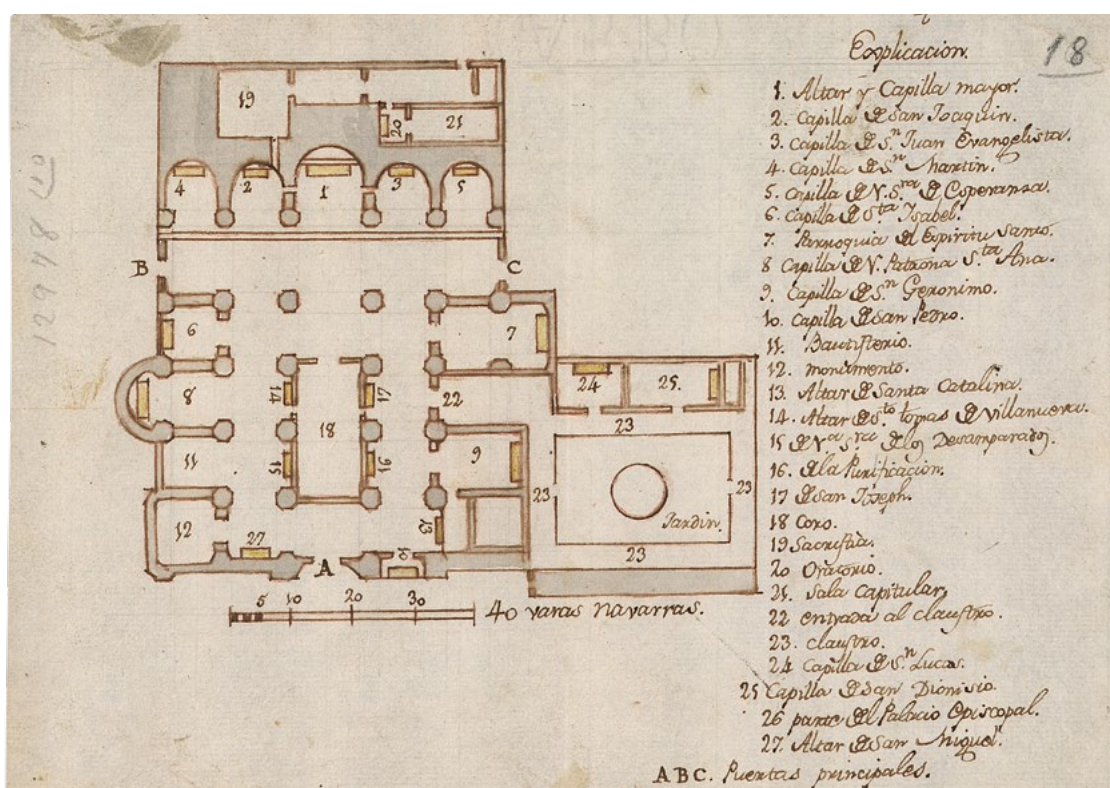 Explicacion.
18
1. Altar y Capilla mayor.
2. Capilla de San Joaquin.
3. Capilla de S.n Juan Evangelista.
4. Capilla de S.n Martin.
5. Capilla de N. S.ra de Esperanza.
6. Capilla de S.ta Isabel.
7. Parroquia del Espiritu Santo.
8 Capilla de N. Patrona S.ta Ana.
9. Capilla de S.n Geronimo.
10. Capilla de San Pedro.
11. Bautisterio.
12. monumento.
13. Altar de Santa Catalina.
14. Altar de S.to tomas de Villanueva.
15 de N.a S.ra de los Desamparados.
16. de la Purificacion.
17 de San Joseph.
18 Coro.
19 Sacristia.
20 Oratorio.
21. Sala Capitular,
22 entrada al claustro.
23. claustro.
24 Capilla de S.n Lucas.
25 Capilla de San Dionisio.
26 parte del Palacio Episcopal.
27. Altar de San Miguel.
ABC. Puertas principales.
19
20
21
4
2
1
3
5
B
C
6
7
8
14
17
22
24
25.
18
23
11
15
16
9
23
23
12
27
13
Jardin.
A
10
23
5 10 20 30
40 varas navarras.